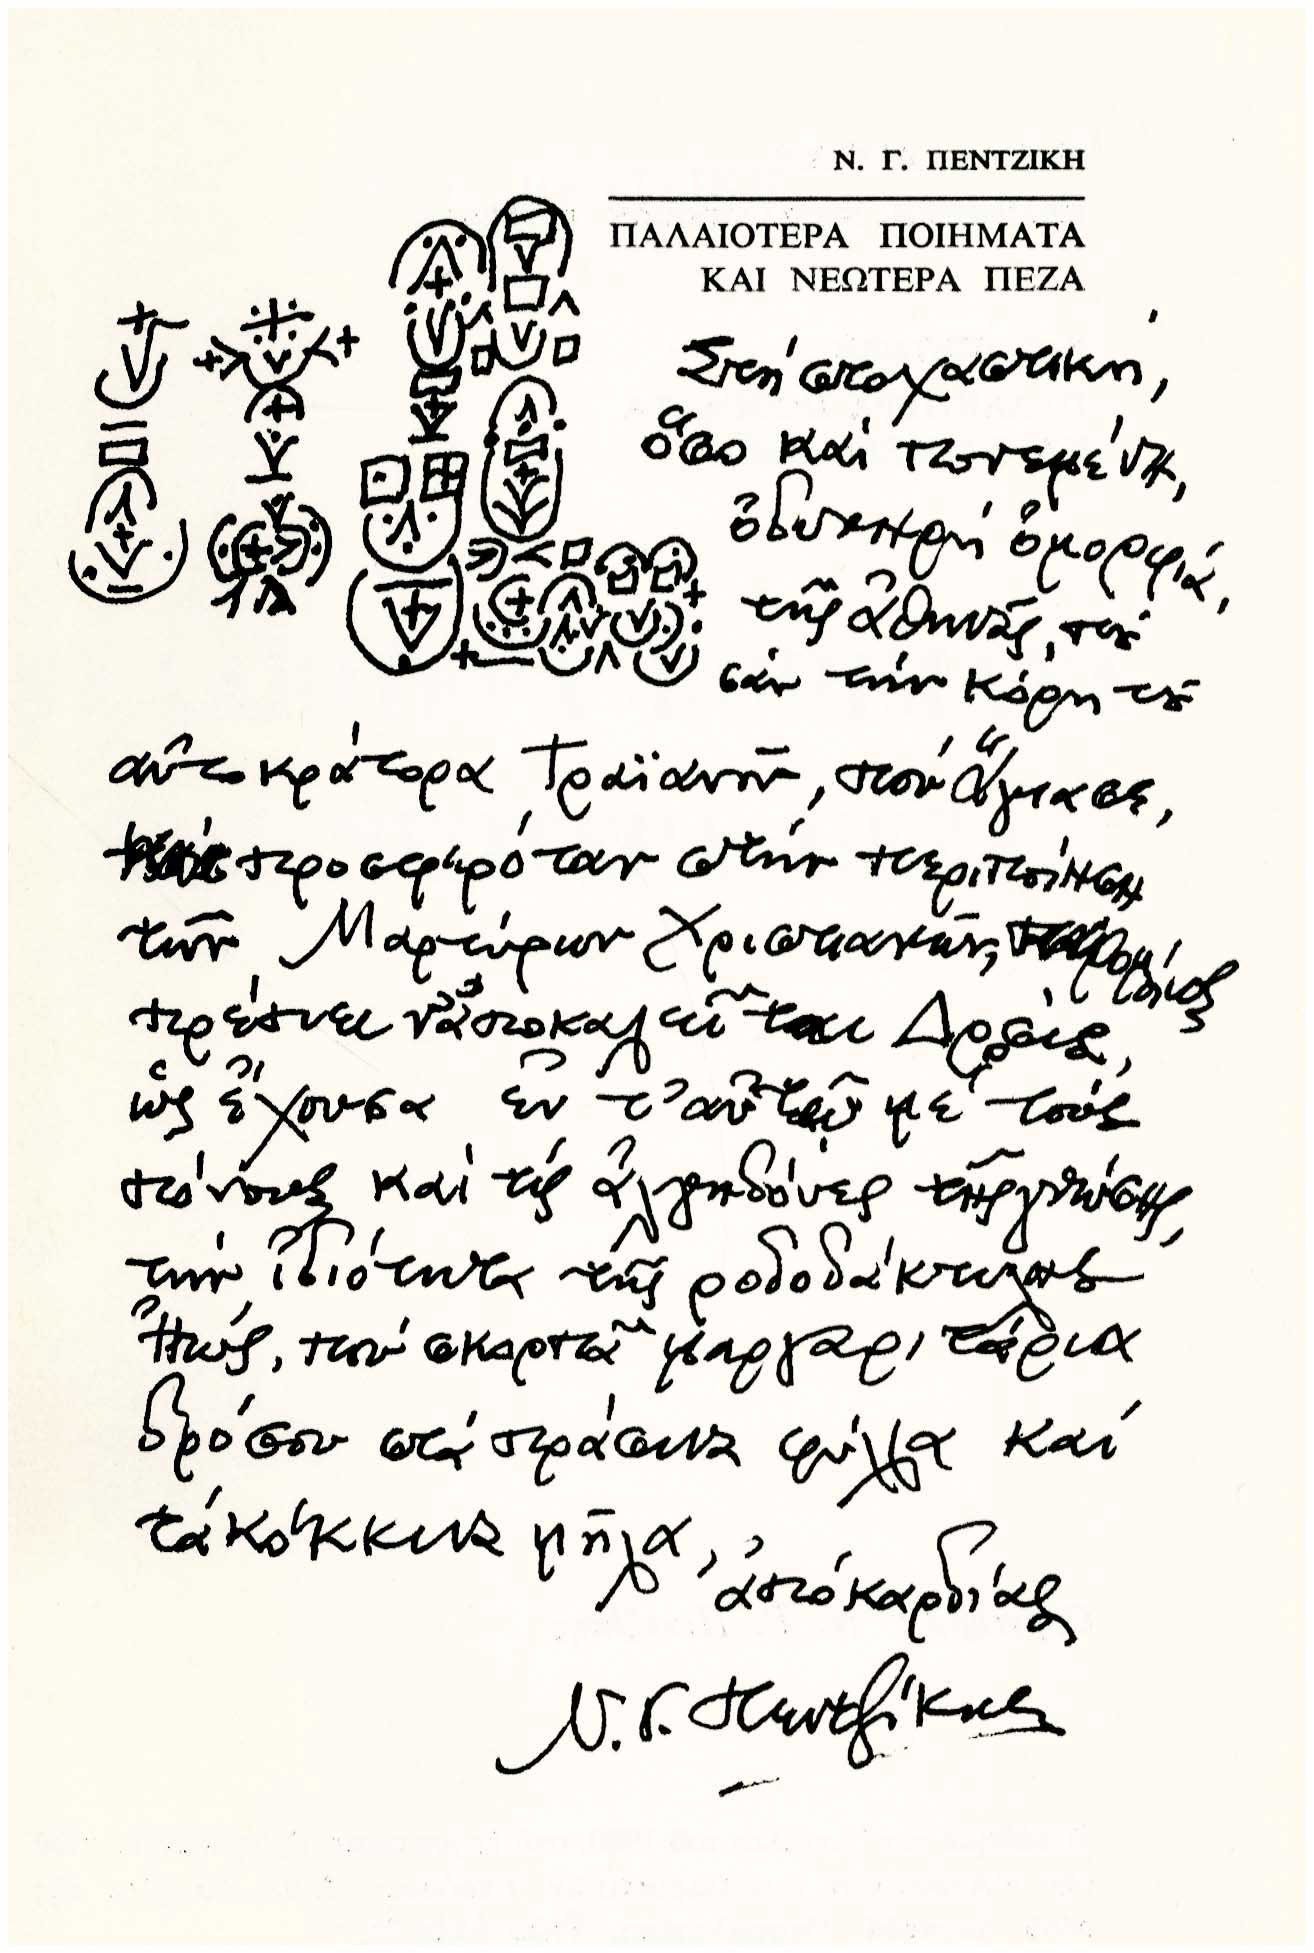 Ν. Γ. ΠΕΝΤΖΙΚΗ
ΠΑΛΑΙΟΤΕΡΑ ΠΟΙΗΜΑΤΑ
ΚΑΙ ΝΕΩΤΕΡΑ ΠΕΖΑ
Στή στοχαστική,
ὅσο καί πονεμένη,
ὀδυνηρή ὀμορφιά,
τῆς Ἀθηνᾶς, πού
σάν τήν κόρη τοῦ
αὐτοκράτορα Τραϊανοῦ, πού ἅγιασε,
προσφερόταν στήν περιποίηση
τῶν Μαρτύρων Χριστιανῶν, παρομοίως
πρέπει νἀποκαλεῖται Δροσίς,
ὡς ἔχουσα ἐν τ' αὐτῷ μέ τούς
πόνους καί τίς ἀλγηδόνες τῆς γνώσης,
τήν ἰδιότητα τῆς ροδοδάκτυλης
Ἠώς, πού σκορπᾶ μαργαριτάρια
δρόσου στά πράσινα φύλλα καί
τά κόκκινα μῆλα,
ἀπό καρδίας
Ν. Γ. Πεντζίκης